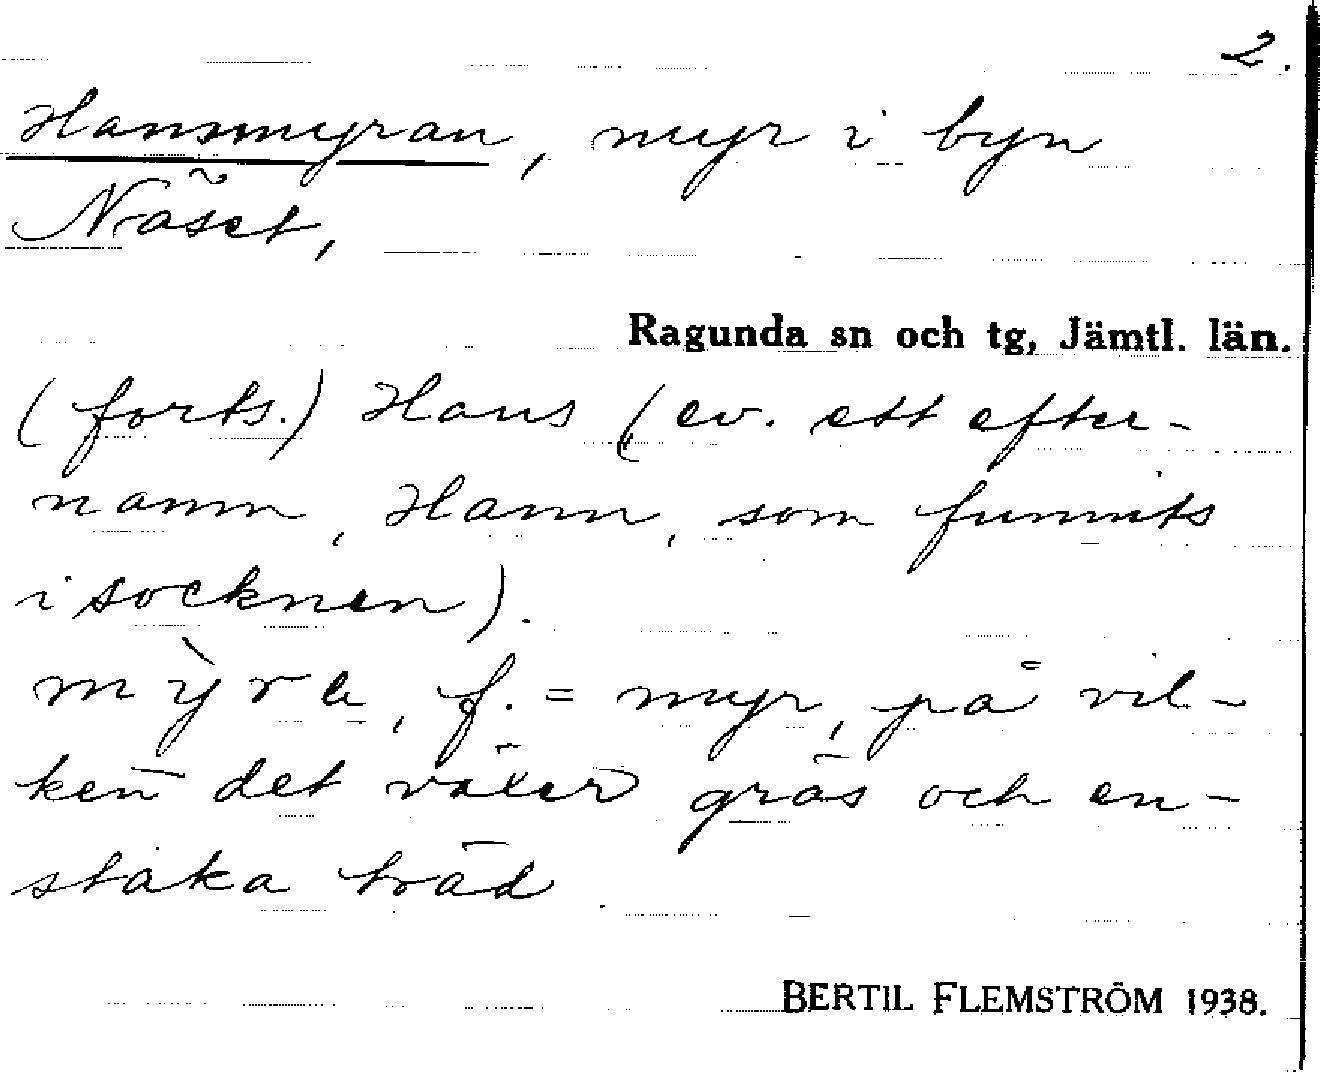 2.
Hansmyran, myr i byn
Näset,
Ragunda sn och tg, Jämtl. län.
(forts.) Hans (ev. ett efter-
namn, Hann, som funnits
i socknen).
mỳra, f. = myr, på vil-
ken det växer gräs och en-
staka träd.
BERTIL FLEMSTRÖM 1938.